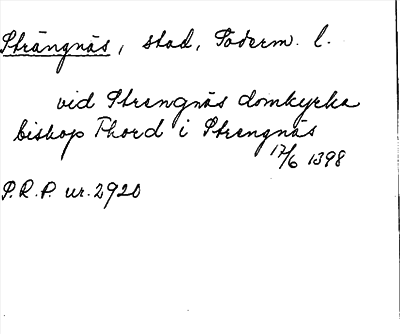 Strängnäs, stad, Söderm. l.
vid Strengnäs domkyrka
biskop Thord i Strengnäs
17/6 1398
P.R.P. nr. 2920